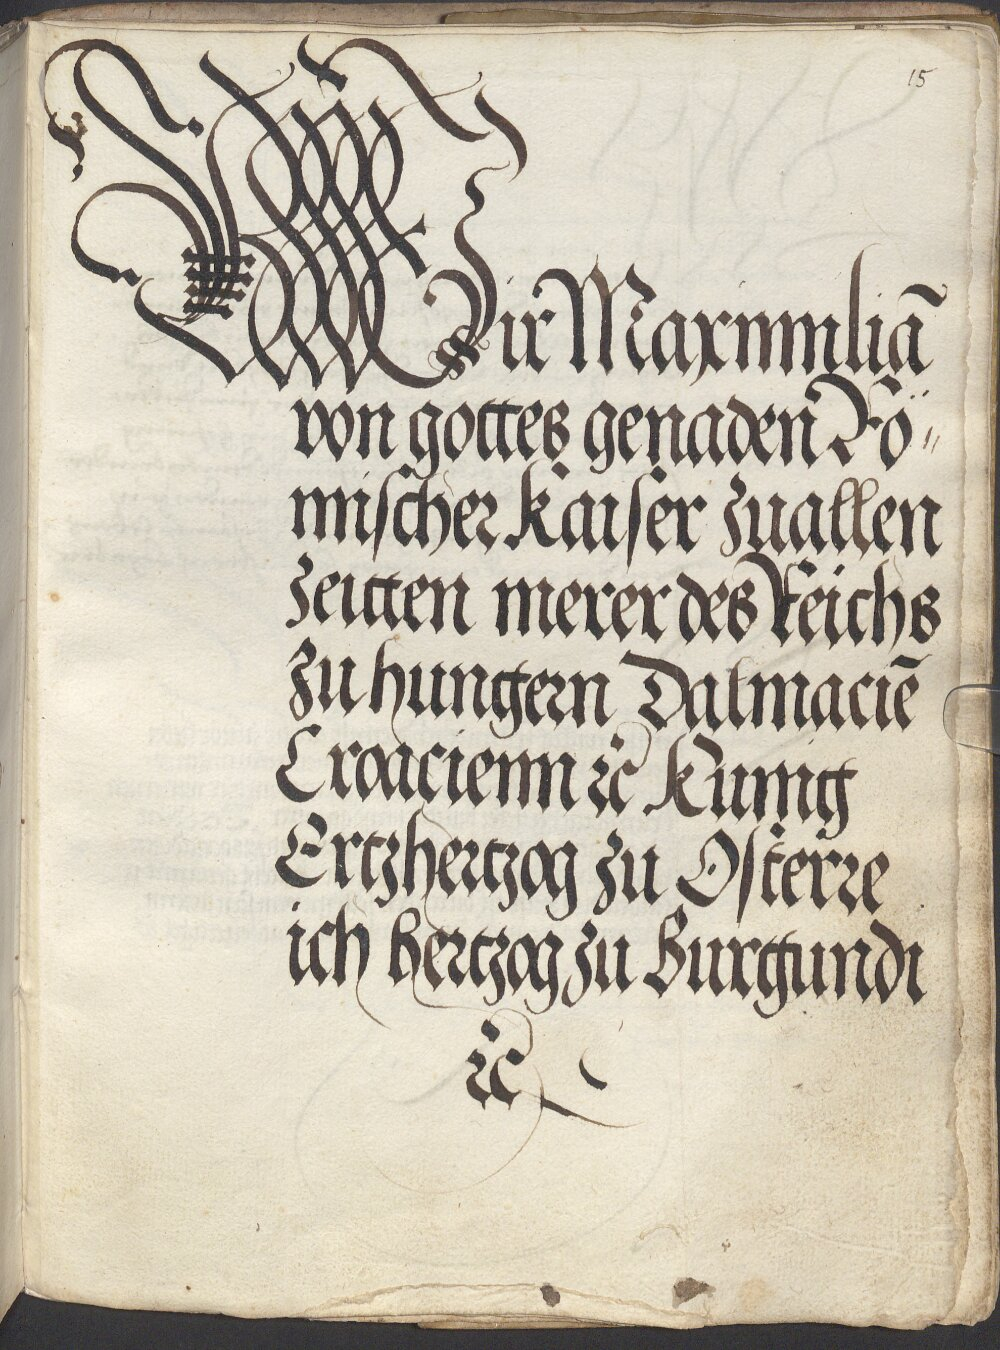 15
Wir Maximiliā
von gottes genaden Rö⸗
mischer kaiser zuallen
zeitten merer des Reichs
zu hungern Dalmaciē
Croacienn ꝛc̃ Kunig
Ertzhertzog zu Osterre
ich hertzog zu Burgundi
ꝛc̃